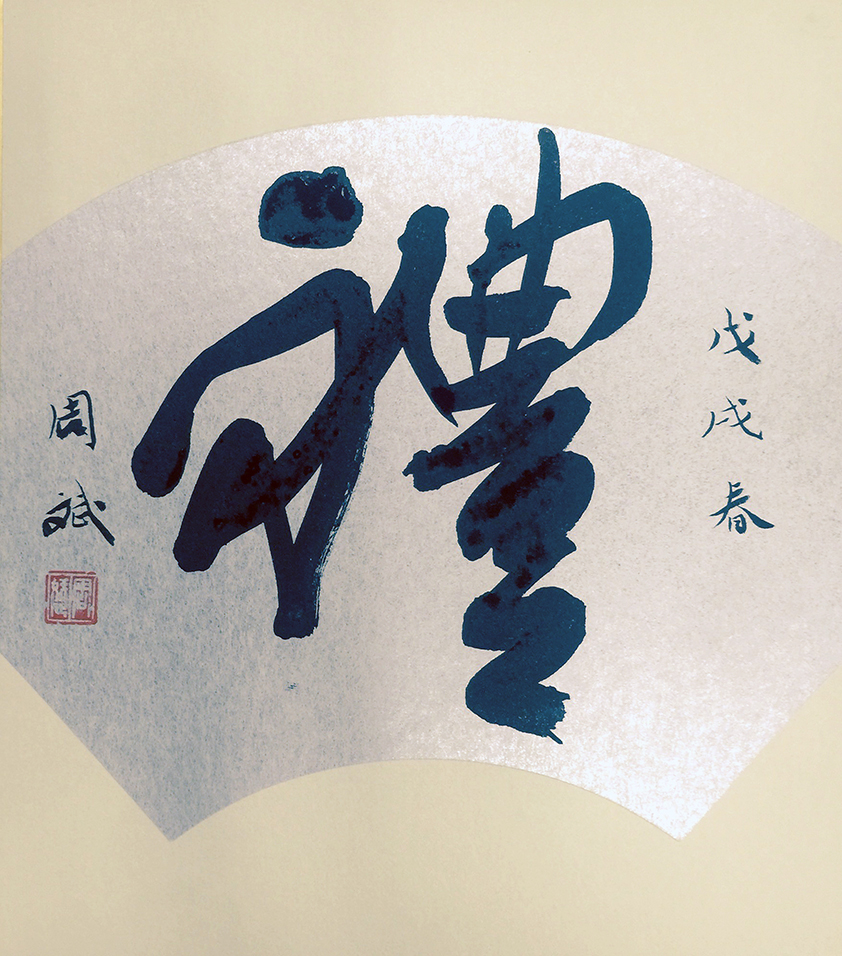 戊戌春
禮
周斌